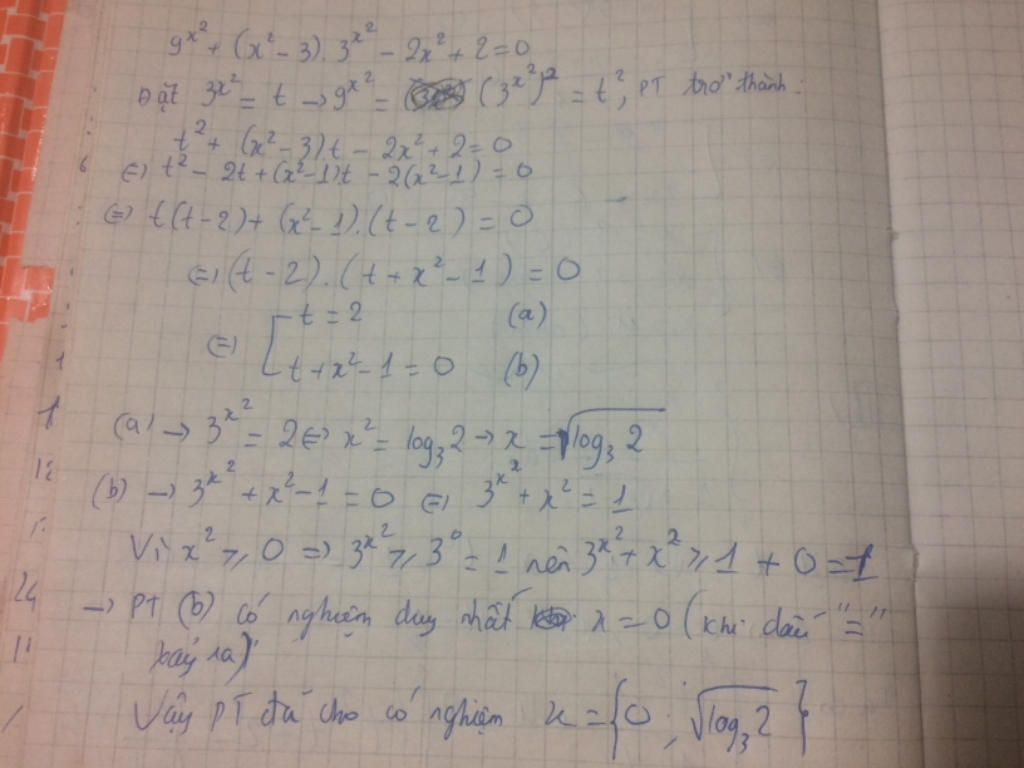 9^{x^2} + (x^2 - 3). 3^{x^2} - 2x^2 + 2 = 0
Đặt 3^{x^2} = t → 9^{x^2} = (3^{x^2})^2 = t^2, PT trở thành:
t^2 + (x^2 - 3)t - 2x^2 + 2 = 0
⇔ t^2 - 2t + (x^2 - 1)t - 2(x^2 - 1) = 0
⇔ t(t - 2) + (x^2 - 1).(t - 2) = 0
⇔ (t - 2).(t + x^2 - 1) = 0
⇔ [ t = 2 (a)
t + x^2 - 1 = 0 (b)
(a) → 3^{x^2} = 2 ⇔ x^2 = log_3 2 → x = √(log_3 2)
(b) → 3^{x^2} + x^2 - 1 = 0 ⇔ 3^{x^2} + x^2 = 1
Vì x^2 ⩾ 0 ⇒ 3^{x^2} ⩾ 3^0 = 1 nên 3^{x^2} + x^2 ⩾ 1 + 0 = 1
→ PT (b) có nghiệm duy nhất x = 0 (khi dấu "="
xảy ra)
Vậy PT đã cho có nghiệm x = {0 ; √(log_3 2)}